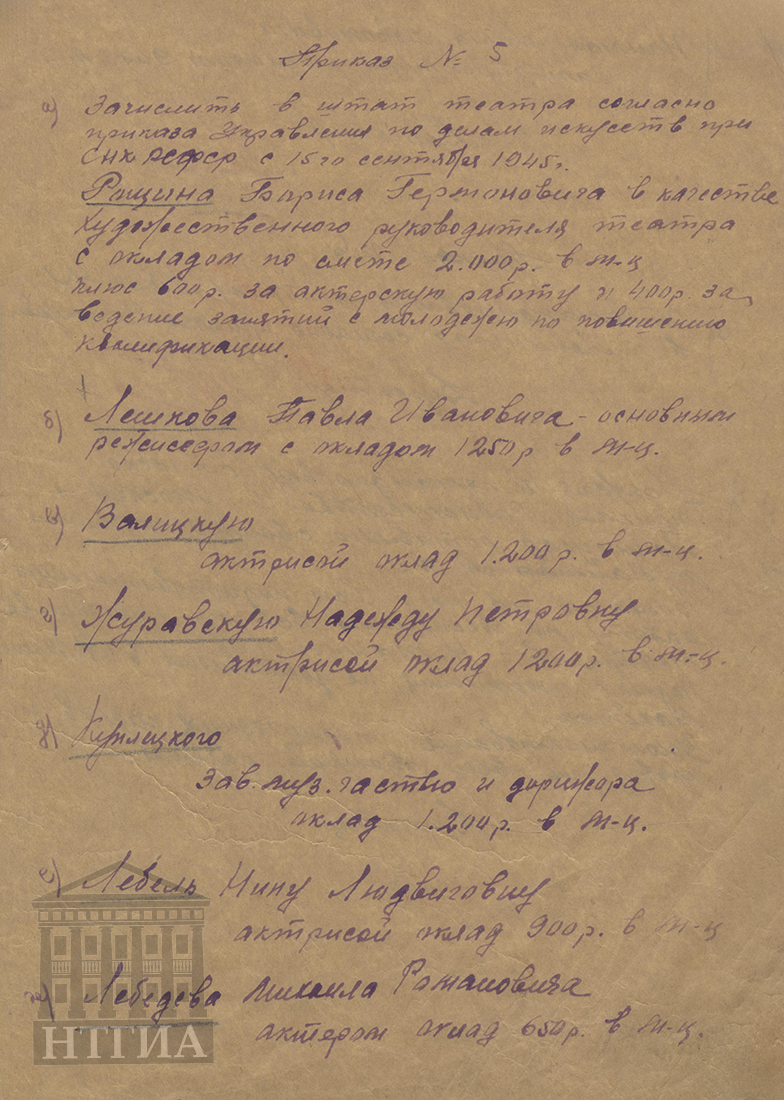 Приказ № 5
а) Зачислить в штат театра согласно
приказа Управления по делам искусств при
СНК РСФСР с 15го сентября 1945г.
Рощина Бориса Германовича в качестве
художественного руководителя театра
с окладом по смете 2.000р. в м-ц
плюс 600р. за актерскую работу и 400р. за
ведение занятий с молодежью по повышению
квалификации.
б) Лешкова Павла Ивановича - основным
режиссером с окладом 1250р в м-ц.
в) Валицкую
актрисой оклад 1.200р. в м-ц.
г) Журавскую Надежду Петровну
актрисой оклад 1200р. в м-ц.
д)
зав. муз. частью и дирижора
оклад 1.200р. в м-ц.
е) Лебель Нину Людвиговну
актрисой оклад 900р. в м-ц
Лебедева Михаила Романовича
актером оклад 650р. в м-ц.
НТГИА